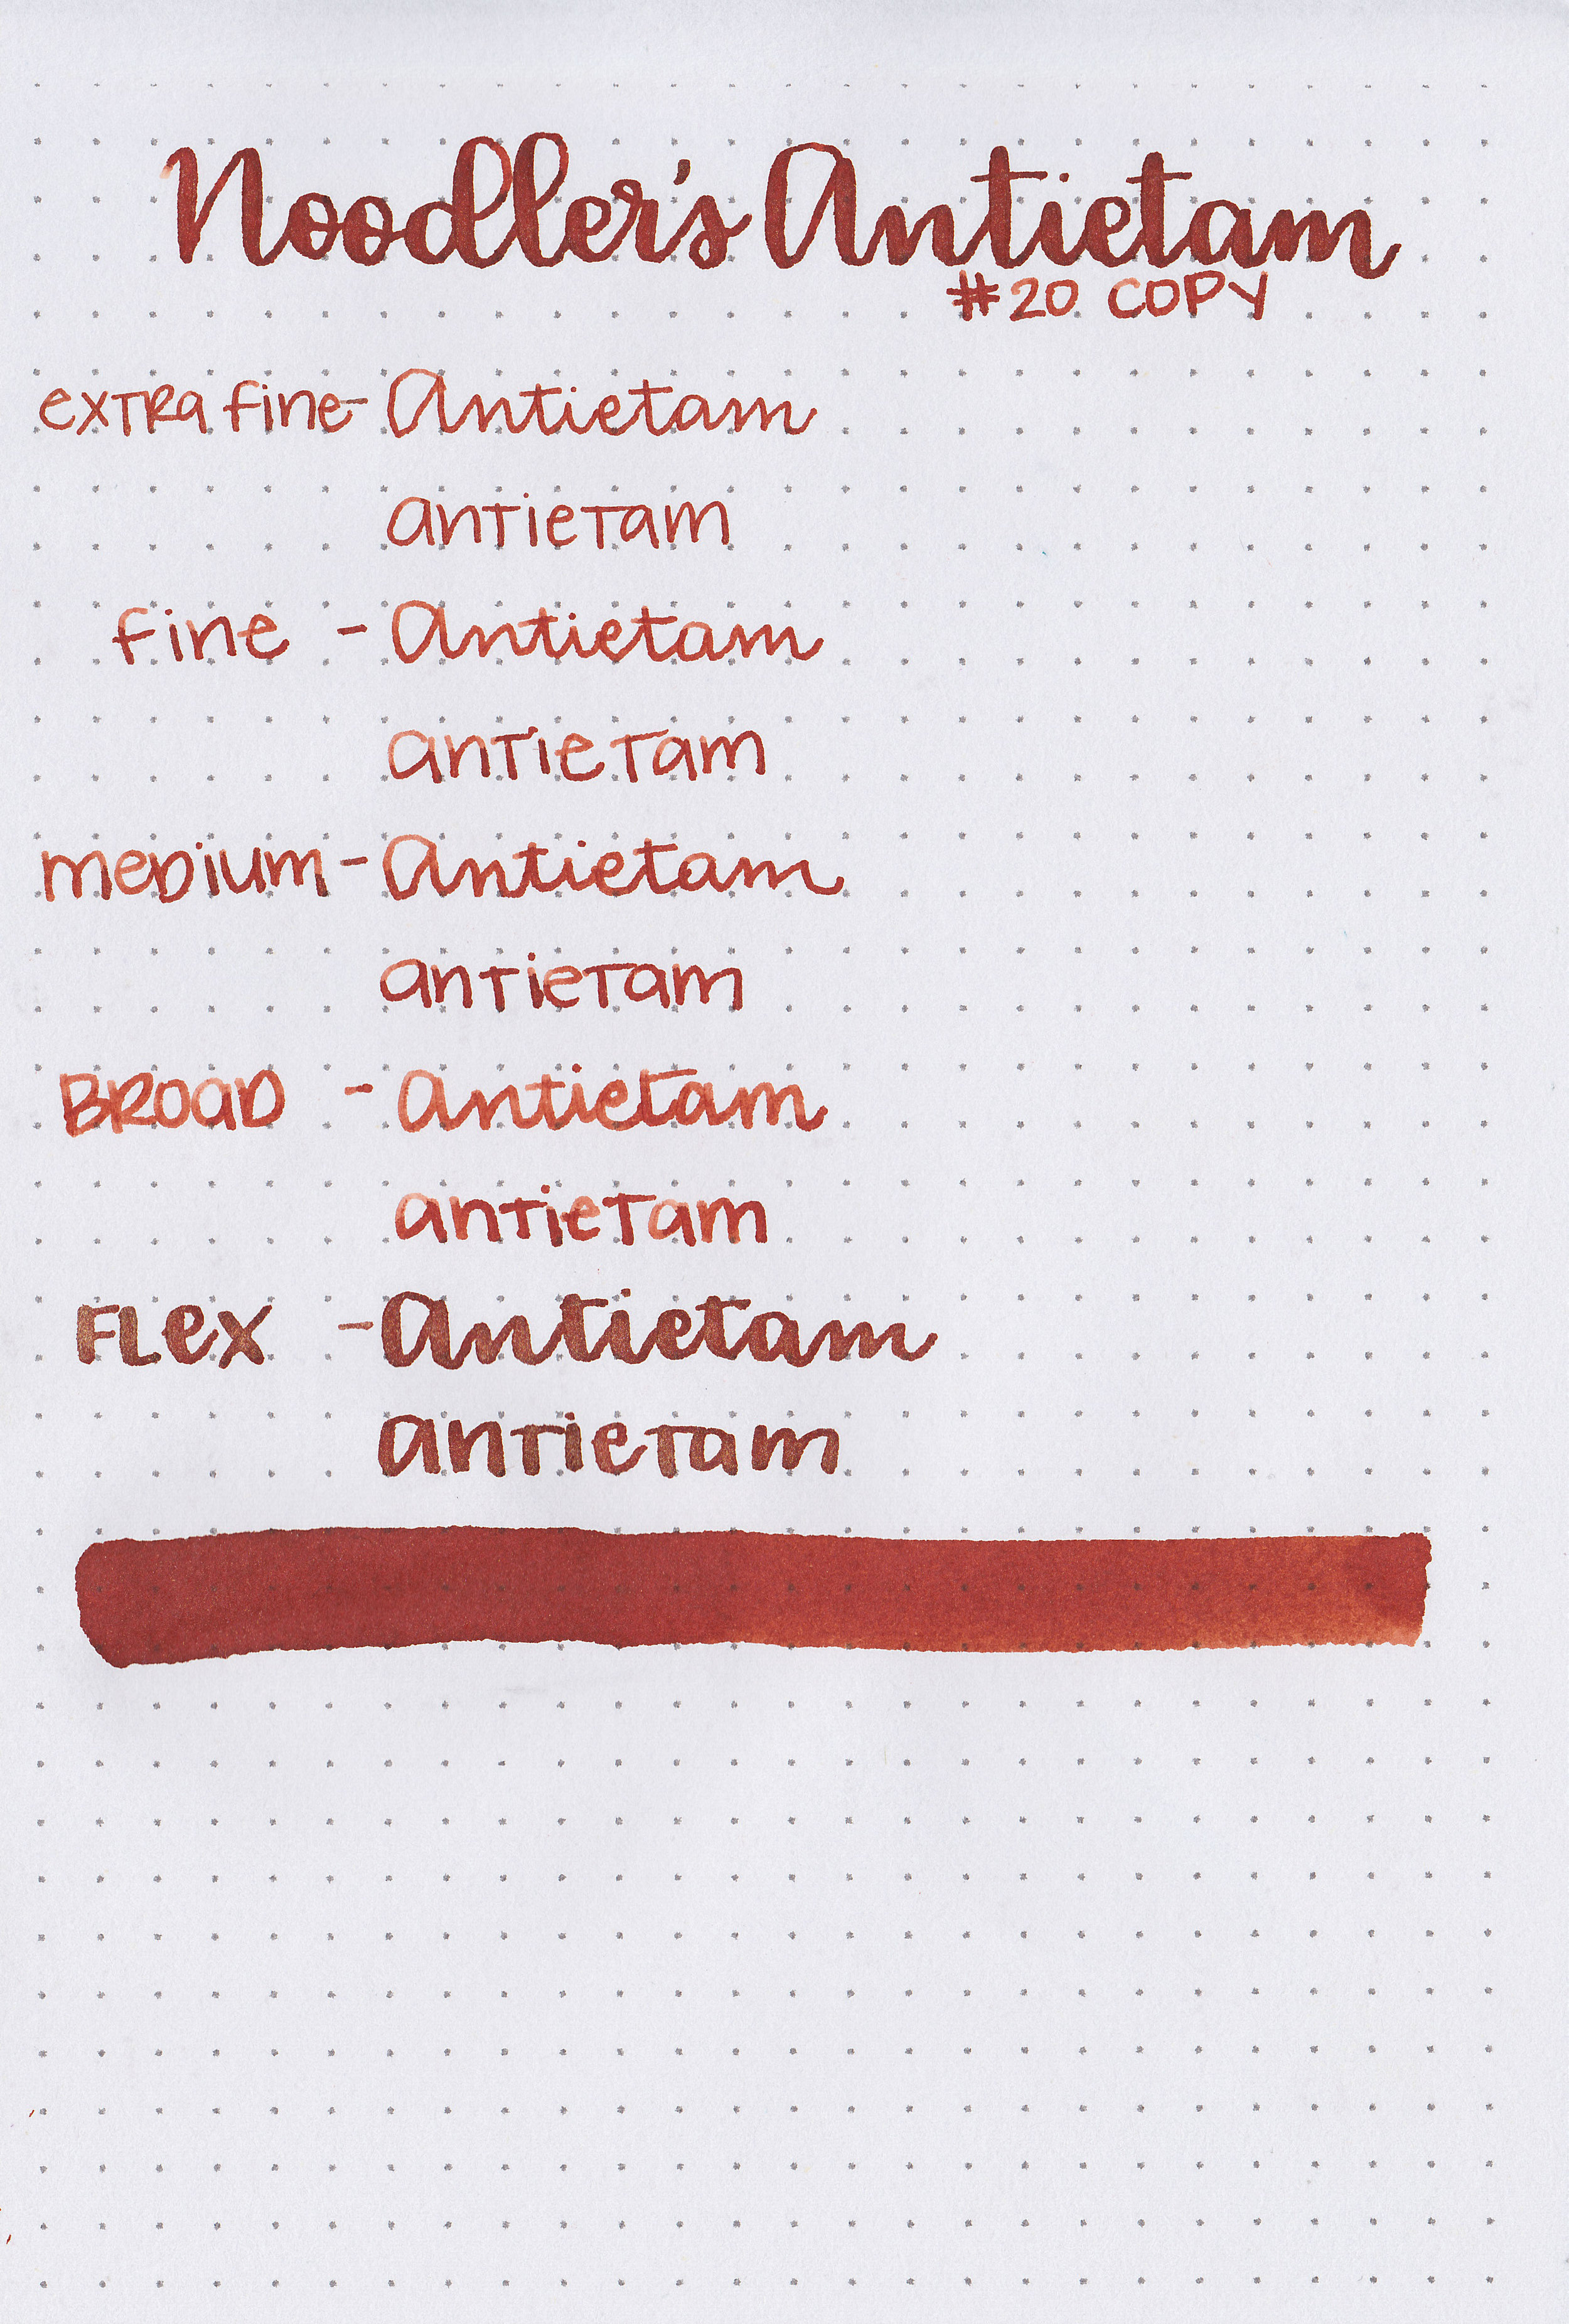 Noodler's Antietam
#20 COPY
exTRa fine- Antietam
anTieTam
fine - Antietam
anTieTam
meDium - Antietam
anTieTam
BROaD - Antietam
anTieTam
FLex - Antietam
anTieTam